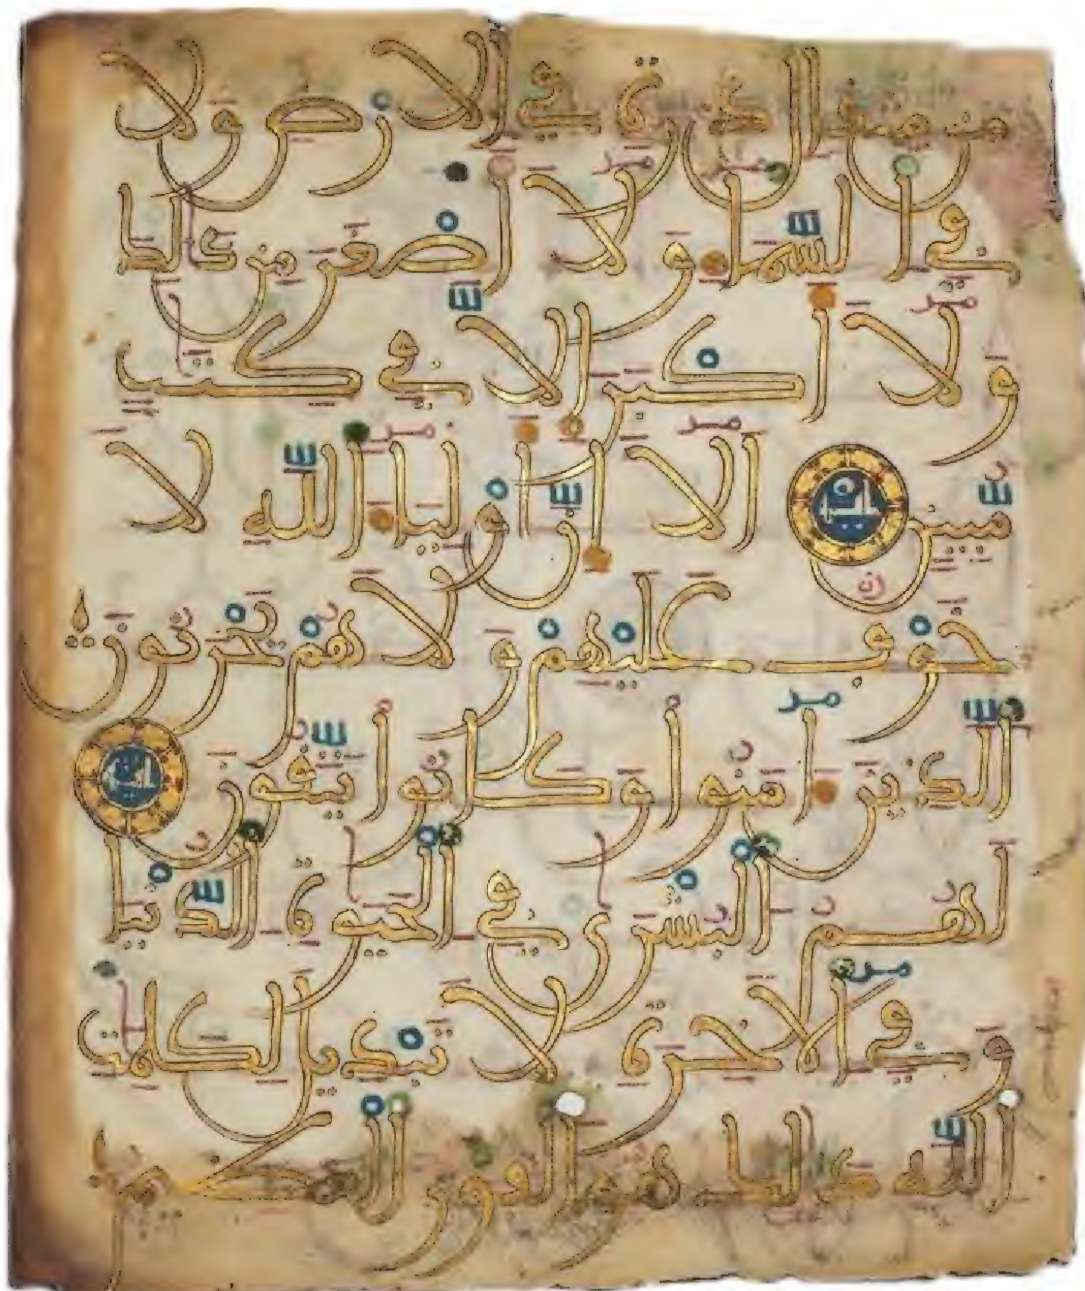 من مثقال ذرة في الارض ولا
في السماء ولا أصغر من ذلك
ولا أكبر إلا في كتب
مبين ألا إن أولياء الله لا
خوف عليهم ولا هم يحزنون
الذين ءامنوا وكانوا يتقون
لهم البشرى في الحيوة الدنيا
وفي الاخرة لا تبديل لكلمت
الله ذلك هو الفوز العظيم